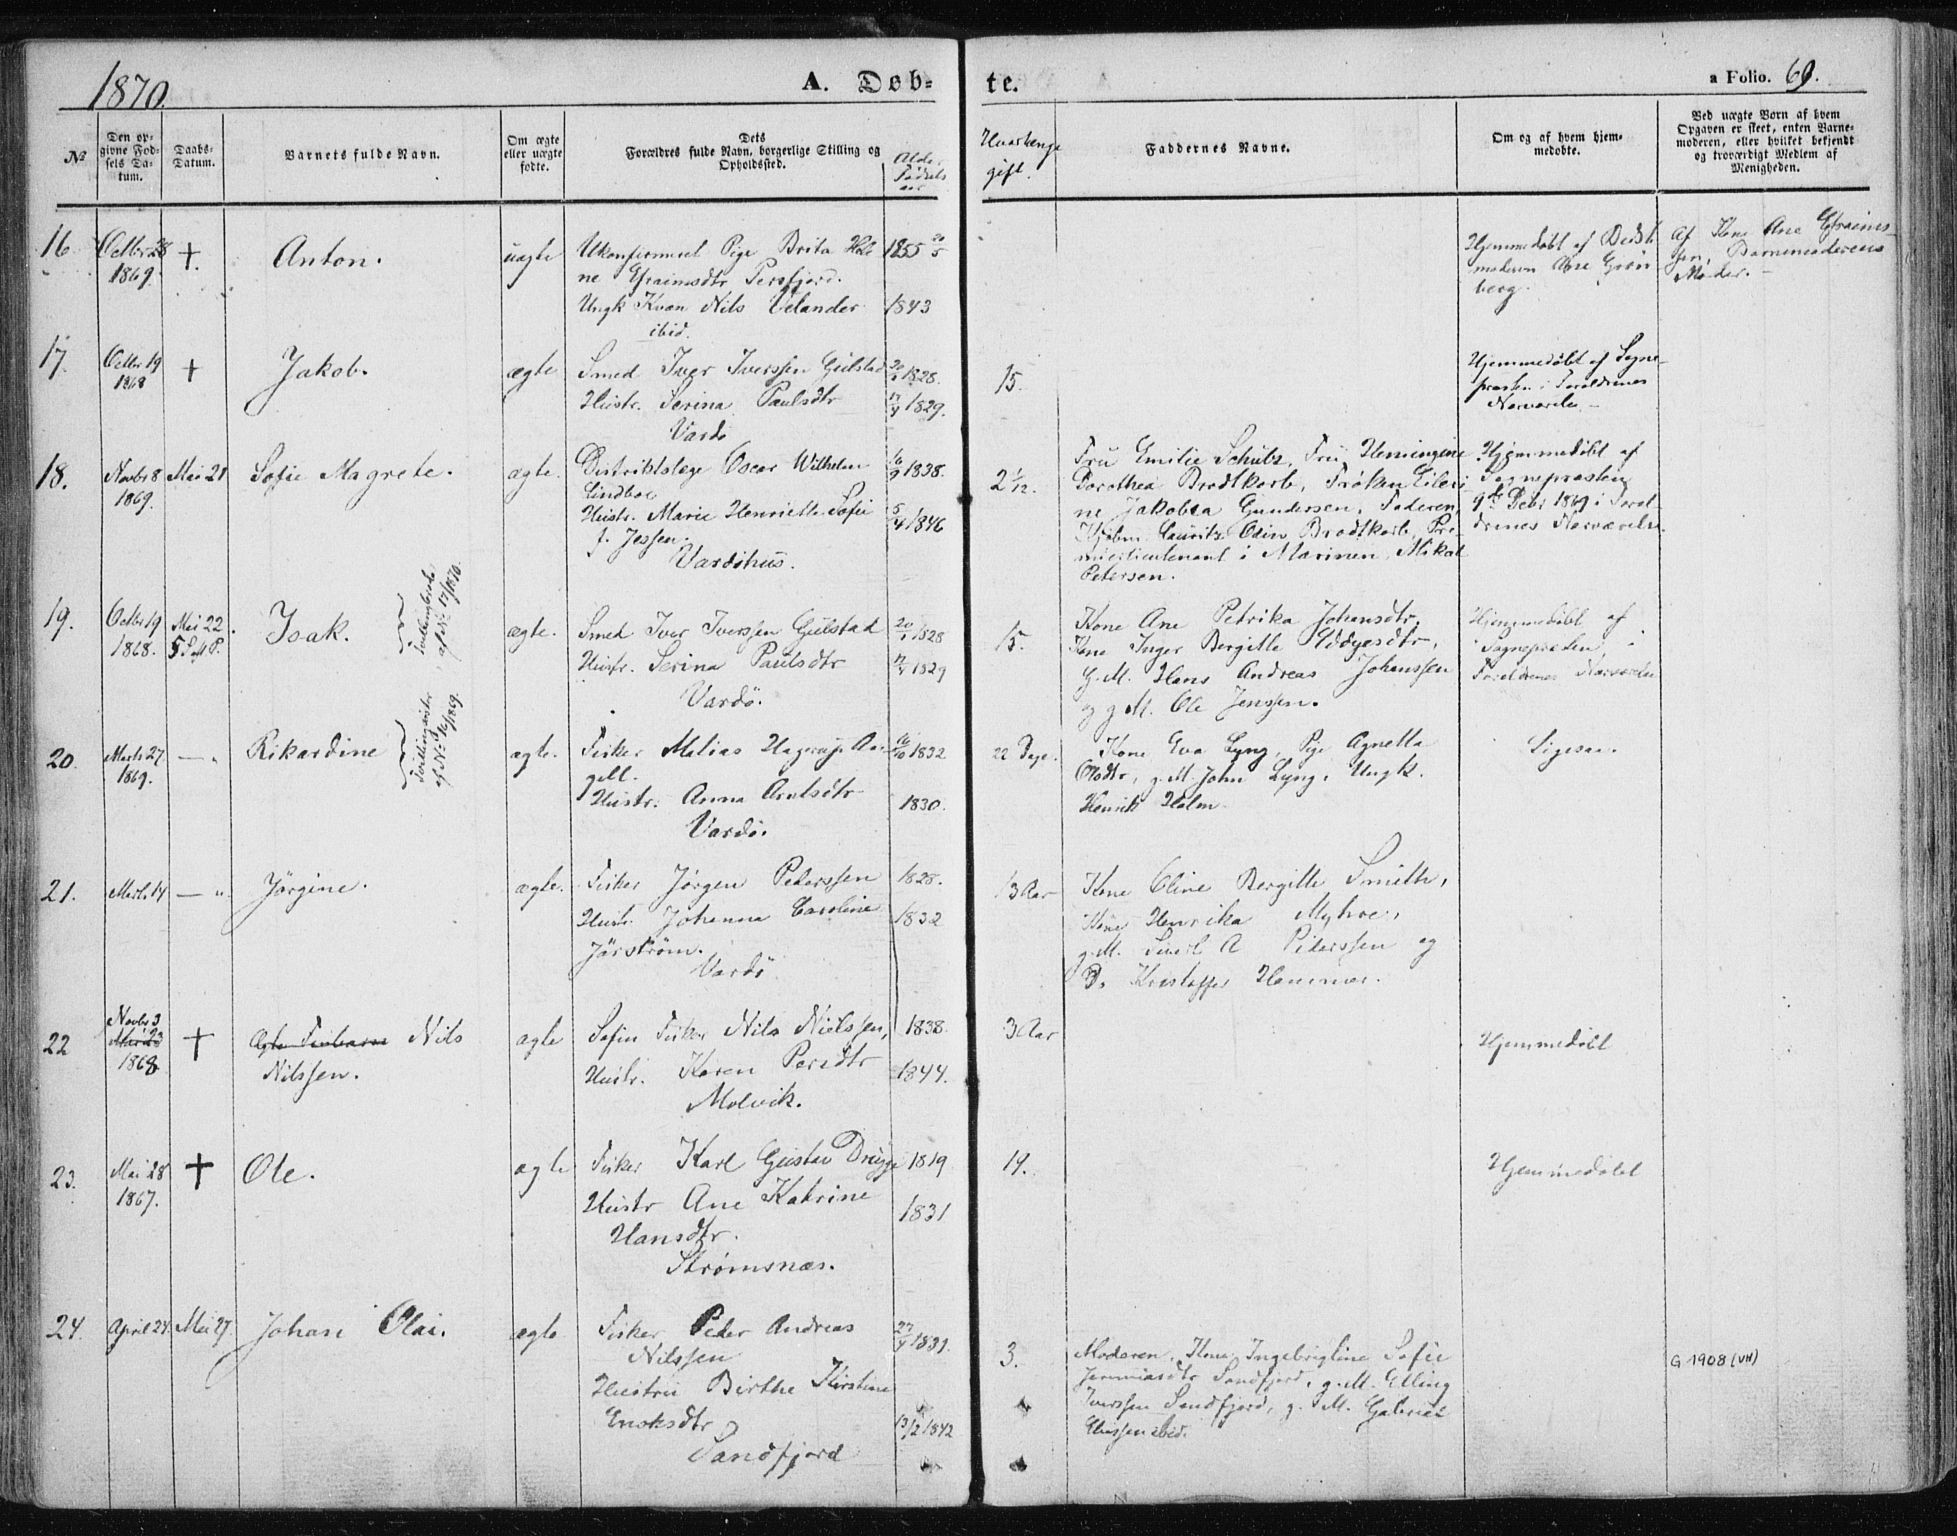 1870.
A. Døb-
te.
a Folio. 69.
No
Den op-
givne Fød-
sels Da-
tum.
Daabs-
Datum.
Barnets fulde Navn.
Om ægte
eller uægte
fødte.
Dets
Forældres fulde Navn, borgerlige Stilling og
Opholdssted.
Alder
Fødsels
aar
Hvorlænge
gift.
Faddernes Navne.
Om og af hvem hjem-
medøbte.
Ved uægte Børn af hvem
Opgaven er skeet, enten Barne-
moderen, eller hvilket bekjendt
og troværdigt Medlem af
Menigheden.
16
Octbr 28
1869
†
Anton.
uægte
Ukonfirmeret Pige Brita Hele
ne Efraimsdtr Persfjord.
Ungk Kvæn Nils Velander
ibid.
1855 20/5
1843
Hjemmedøbt af Bedste
moderen Ane Grøn
berg.
Af Kone Ane Efraims-
sen, Barnemoderens
Moder.
17.
Octbr 19
1868
†
Jakob.
ægte
Smed Iver Iverssen Gulstad
Hustr. Serina Paulsdtr
Vardø
1828.
1829.
15.
Hjemmedøbt af Sogne-
præsten i Forældrenes
Nærværelse
18.
Novbr 8
1869.
Mai 21
Sofie Magrete.
ægte.
Distriktslæge Oscar Wilhelm
Lindboe
Hustr. Marie Henriette Sofie
f. Jessen.
Vardøhus.
16/9 1838.
5/4 1846
2 1/12.
Fru Emilie Schultz, Fru Henningine
Dorothea Brodtkorb, Frøken Eleri
ne Jakobea Gundersen, Faderen,
Kjøbm. Lauritz Odin Brodtkorb, Pre-
mierlieutenant i Marinen, Mikal
Petersen.
Hjemmedøbt af
Sognepræsten
9de Decbr 1869 i Foræl-
drenes Nærværelse.
19.
Octbr 19
1868.
Mai 22.
5 S. e. P.
Isak.
Tvillingbroder
af No 17/1870.
ægte.
Smed Iver Iverssen Gulstad
Hustr. Serina Paulsdtr
Vardö.
1828
1829
15.
Kone Ane Petrika Johansdtr,
Kone Inger Bergitte
g. M. Hans Andreas Johanssen
og g M. Ole Jenssen.
Hjemmedøbt af
Sognepræsten i
Forældrenes Nærværelse
20.
Marts 27
1869.
— "
Rikardine
Tvillingsøster
af No 16/1869.
ægte.
Fisker Melias Hagerup An
gell.
Hustr. Anna Arntsdtr
Vardö.
16/10 1832
1830.
22 Dage.
Kone Eva Lyng, Pige Agnetta
Olsdtr, g. M. John Lyng, Ungk.
Henrik Holm.
Ligesaa.
21.
Marts 14
— "
Jörgine.
ægte.
Fisker Jörgen Pederssen
Hustr. Johanna Caroline
Jörström.
Vardö
1828.
1832
13 Aar
Kone Oline Bergitte Smith,
Kone Henrika Myhre,
g. M. Sivert A Pederssen og
Do Kristoffer Hammer.
22
Novbr 3
1868
†
Nils
Nilssen.
ægte
Søfin Fisker Nils Nielssen,
Hustr. Karen Persdtr
Molvik.
1838.
1844.
3 Aar
Hjemmedöbt
23.
Mai 28
1867.
†
Ole.
ægte
Fisker Karl Gustav Drugge
Hustr Ane Katrine
Hansdtr.
Strømsnæs.
1819
1831
19.
Hjemmedöbt
24.
April 24.
Mai 27.
Johan Olai.
ægte
Fisker Peder Andreas
Nilssen
Hustru Birthe Kirstine
Enoksdtr
Sandfjord
27/9 1831.
13/2 1842
3.
Moderen, Kone Ingebrigtine Sofie
Jeremiasdtr Sandfjord, g. M. Elling
Iverssen Sandfjord, g. M. Gabriel
Eliassen ibid.
G 1908 (VH)